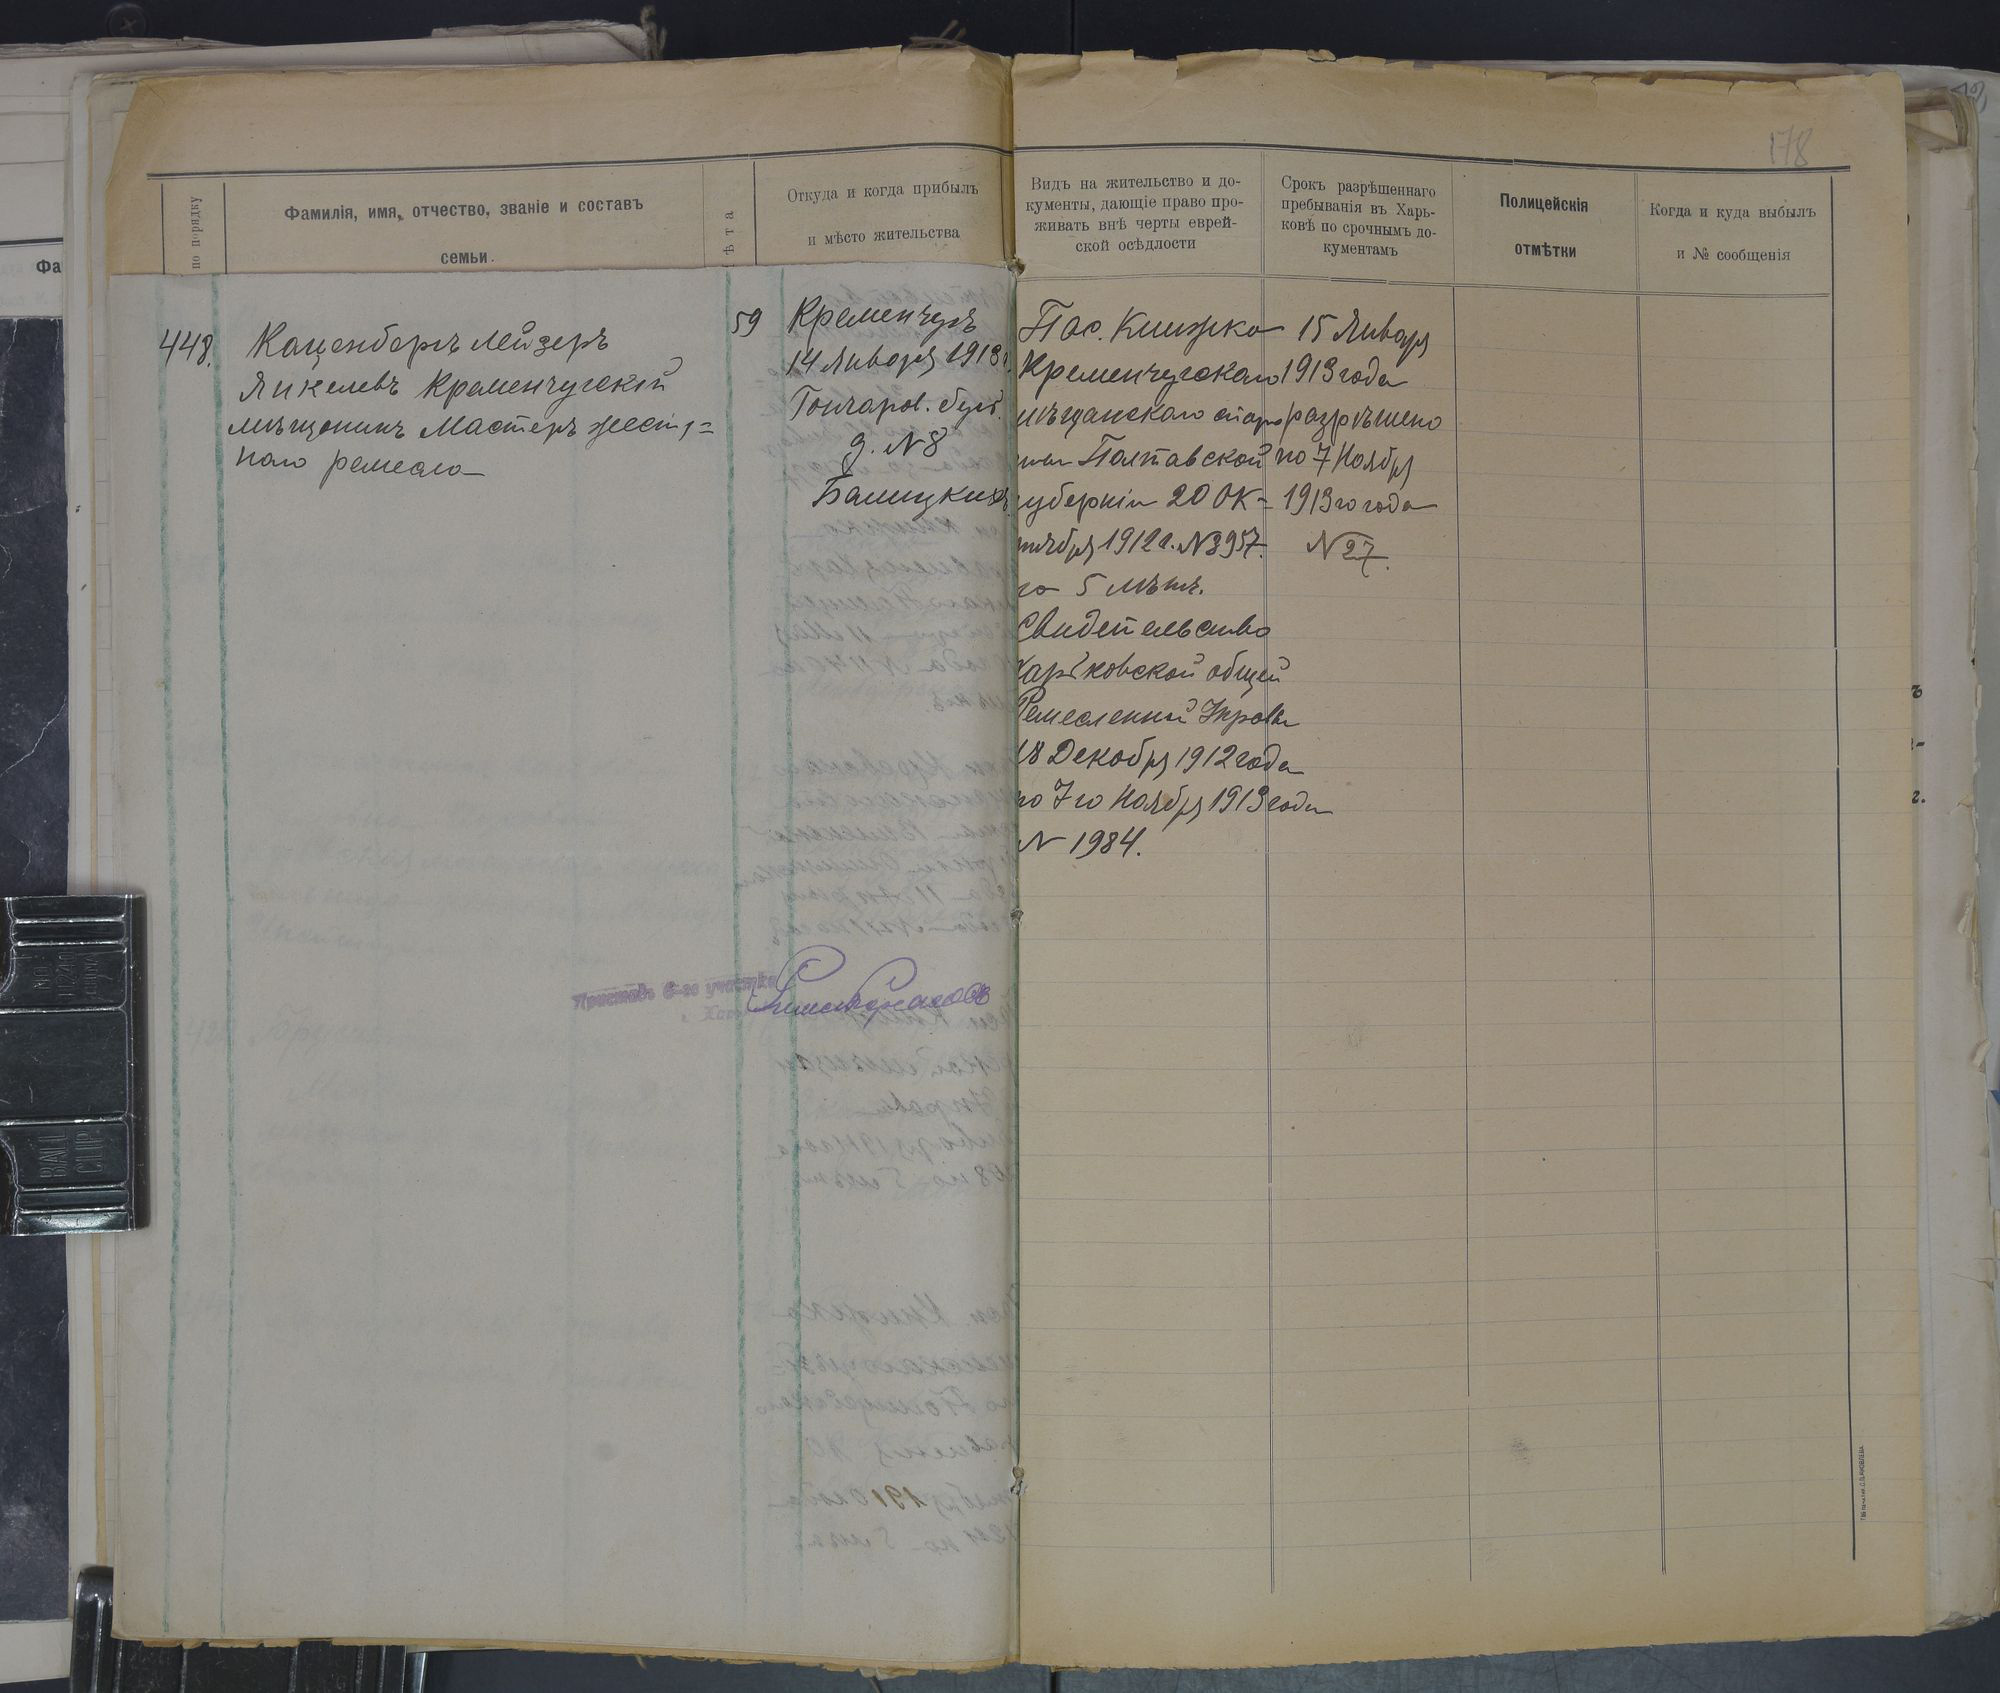 178
по порядку
Фамилія, имя, отчество, званіе и составъ
семьи.
ѣта
Откуда и когда прибылъ
и мѣсто жительства
Видъ на жительство и до-
кументы, дающіе право про-
живать внѣ черты еврей-
ской осѣдлости
Срокъ разрѣшеннаго
пребыванія въ Харь-
ковѣ по срочнымъ до-
кументамъ
Полицейскія
отмѣтки
Когда и куда выбылъ
и № сообщенія
Фа
448.
Каценбергъ Лейзеръ
Янкелевъ Кременчугскій
мѣщанинъ Мастеръ жестя=
наго ремесла
59
Кременчугъ
14 Января 1913 г.
Гончаров. бульв.
д. № 8
Балицкихъ
Пас. Книжка
Кременчугскаго
мѣщанскаго старо
сты Полтавской
губерніи 20 Ок=
тября 1912 г. № 3957.
на 5 лѣтъ.
Свидетельство
Харьковской общей
Ремесленной Управы
18 Декабря 1912 года
по 7 го Ноября 1913 года
№ 1984.
15 Января
1913 года
разрѣшено
по 7 Ноября
1913 го года
№ 27.
Приставъ 6-го участка